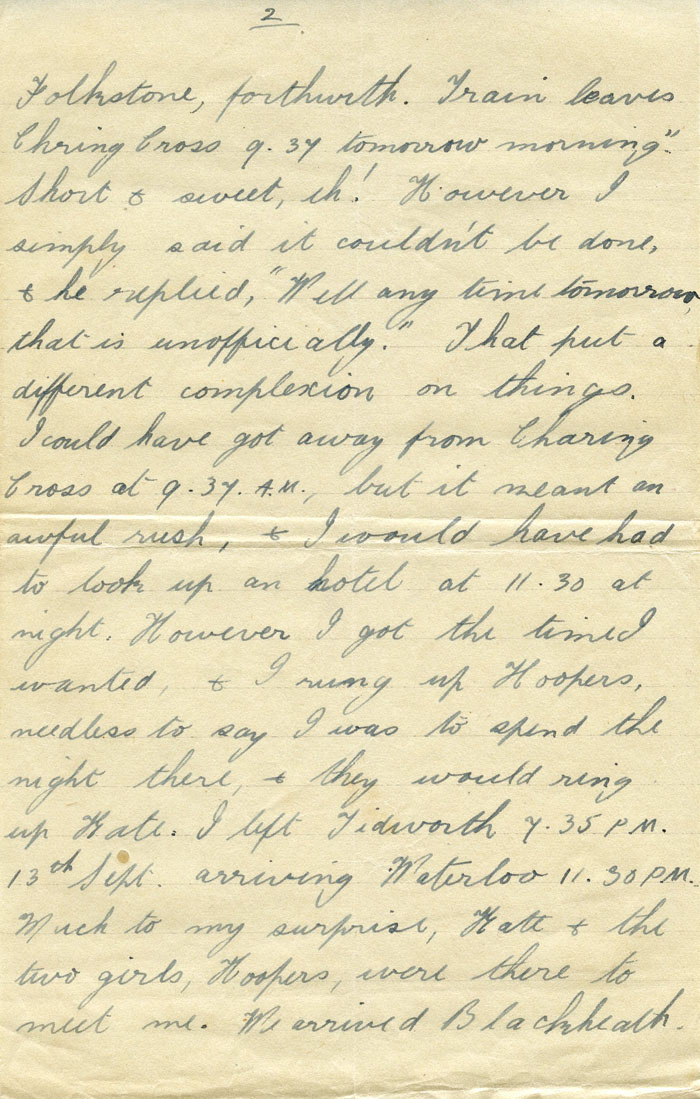 2
Folkstone, forthwith. Train leaves
Chring Cross 9.37 tomorrow morning".
Short & sweet, eh! However I
simply said it couldn't be done,
& he replied, "Well any time tomorrow,
that is unofficially." That put a
different complexion on things.
I could have got away from Charing
Cross at 9.37. A.M., but it meant an
awful rush, & I would have had
to look up an hotel at 11.30 at
night. However I got the time I
wanted, & I rung up Hoopers,
needless to say I was to spend the
night there, & they would ring
up Kate. I left Tidworth 7.35 PM.
13th Sept. arriving Waterloo 11.30 PM.
Much to my surprise, Kate & the
two girls, Hoopers, were there to
meet me. We arrived Blackheath.